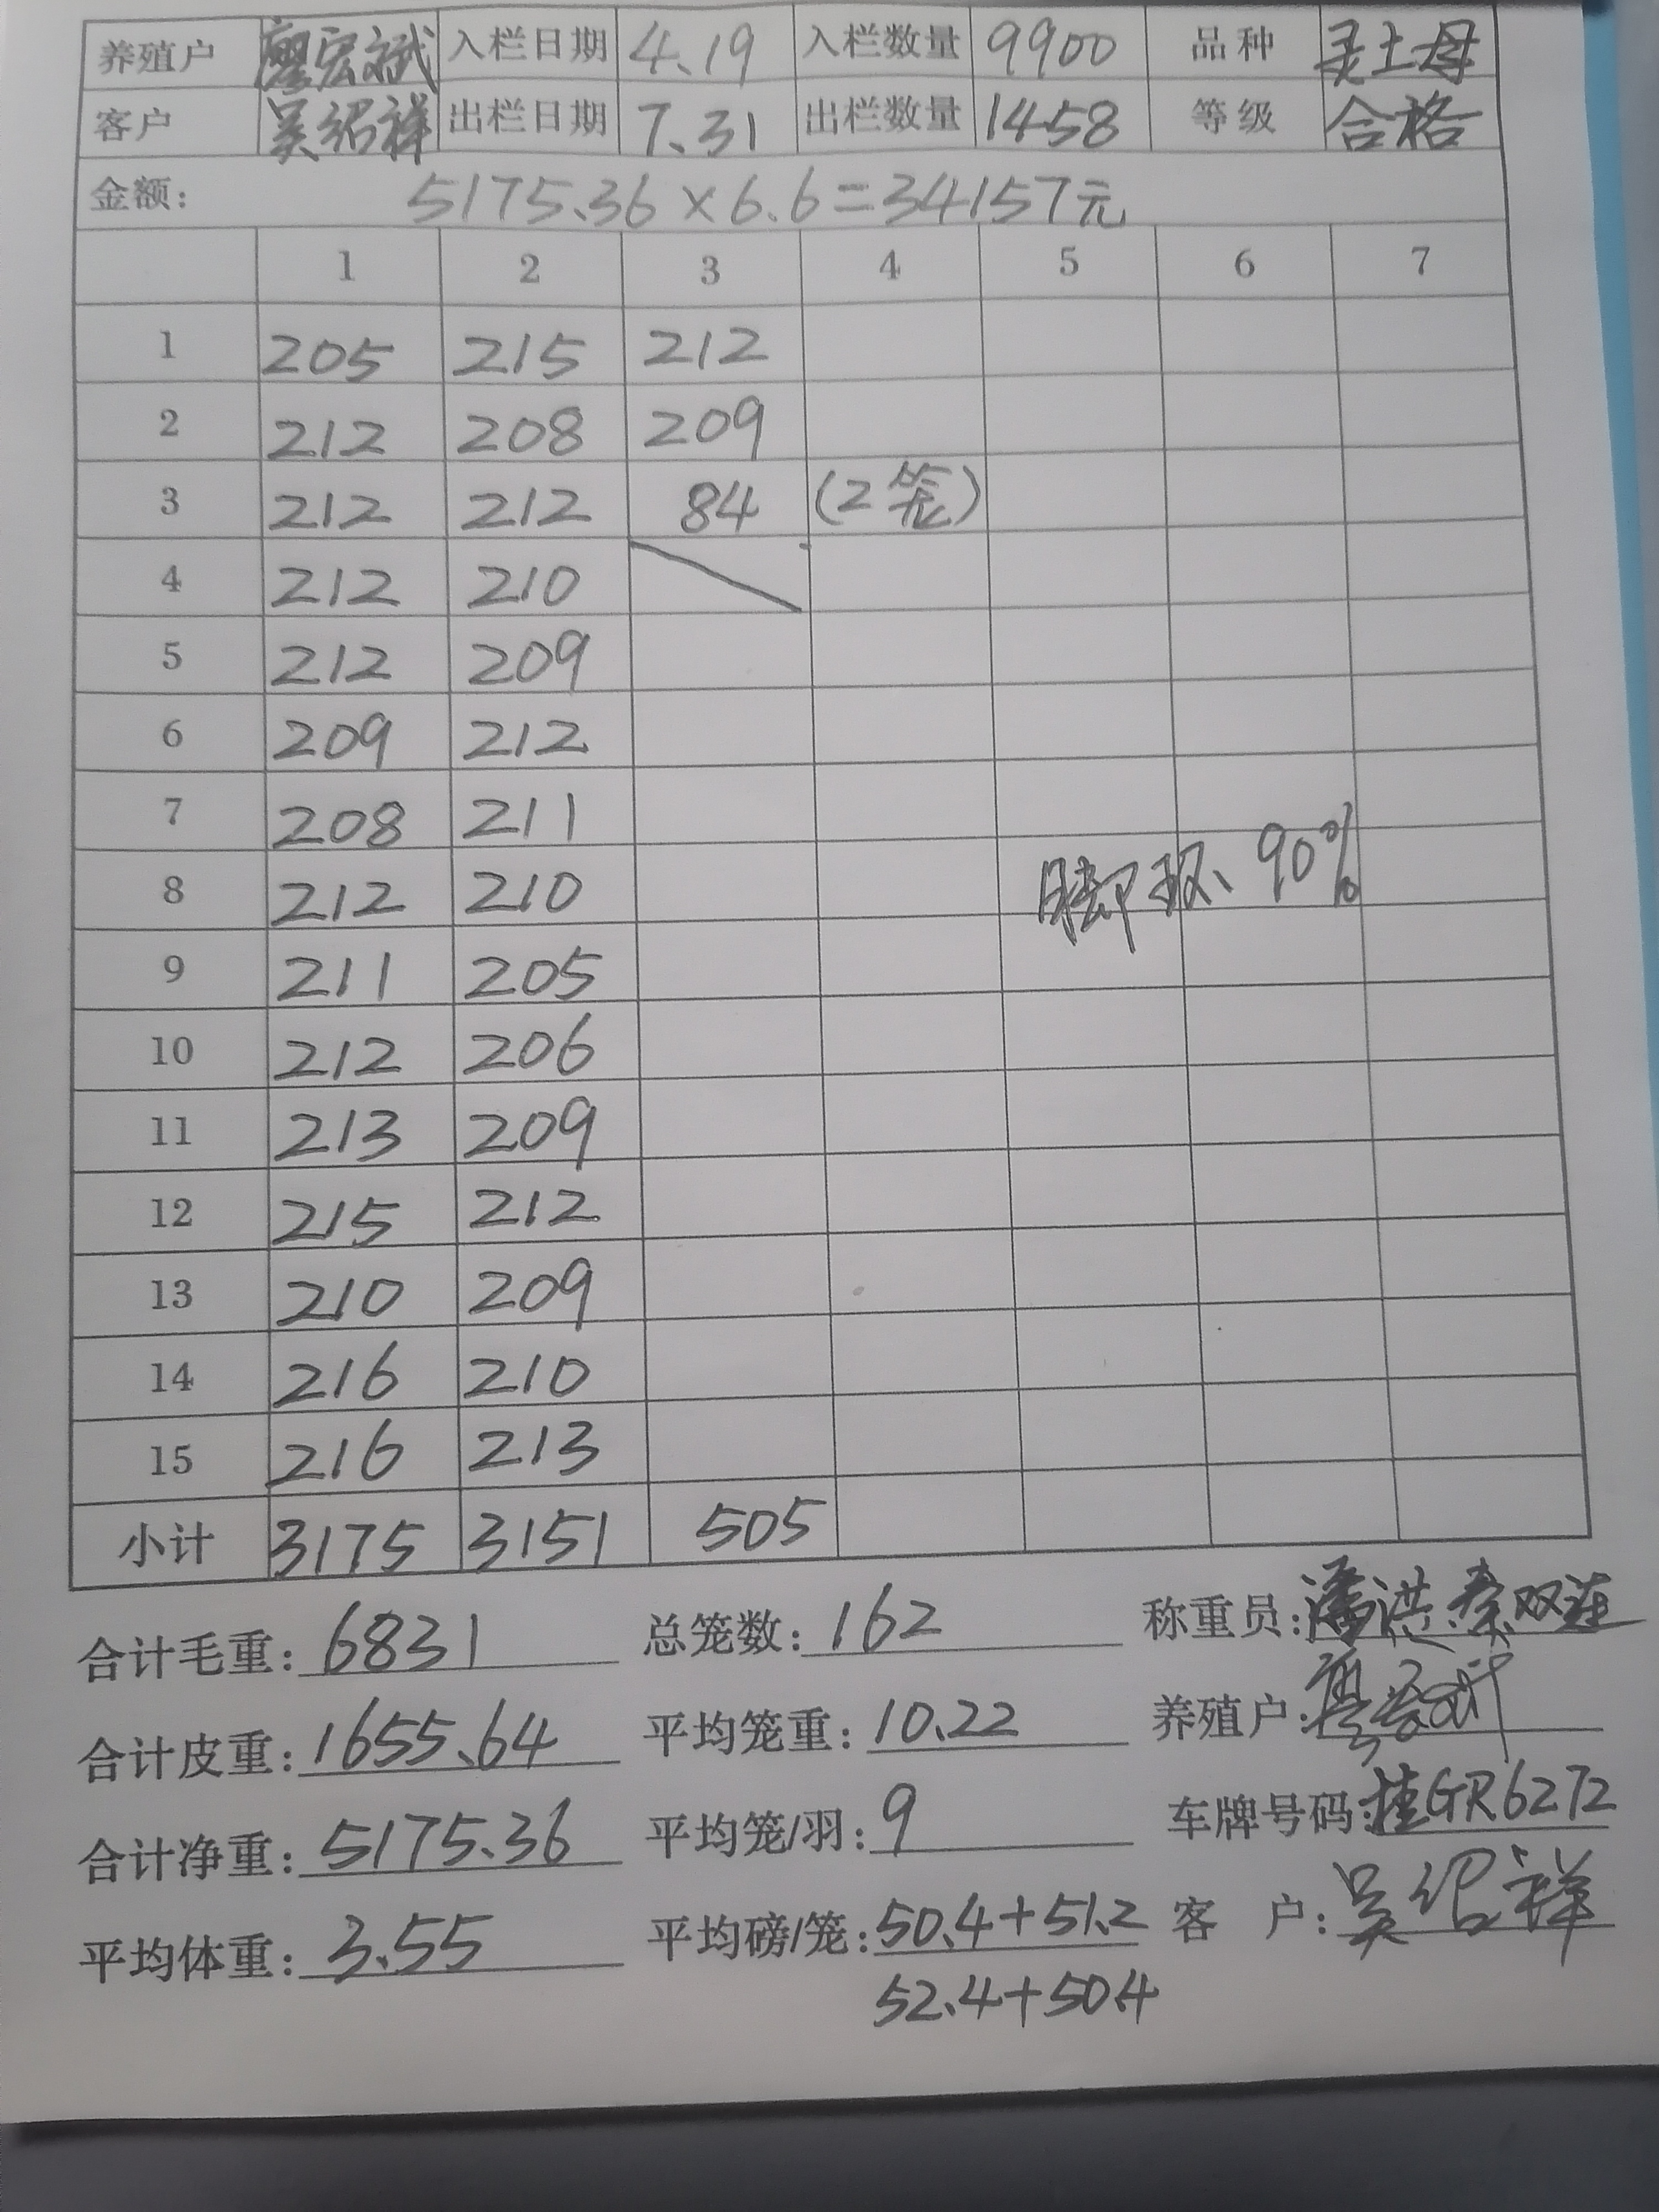 养殖户 廖宏斌 入栏日期 4.19 入栏数量 9900 品种 灵土母
客户 吴绍祥 出栏日期 7.31 出栏数量 1458 等级 合格
金额: 5175.36×6.6=34157元
1 2 3 4 5 6 7
1 205 215 212
2 212 208 209
3 212 212 84 (2笼)
4 212 210
5 212 209
6 209 212
7 208 211
8 212 210 脚环、90%
9 211 205
10 212 206
11 213 209
12 215 212
13 210 209
14 216 210
15 216 213
小计 3175 3151 505
合计毛重: 6831 总笼数: 162 称重员: 潘洪、秦双莲
合计皮重: 1655.64 平均笼重: 10.22 养殖户: 廖宏斌
合计净重: 5175.36 平均笼/羽: 9 车牌号码: 桂GR6272
平均体重: 3.55 平均磅/笼: 50.4+51.2 客 户: 吴绍祥
52.4+50.4